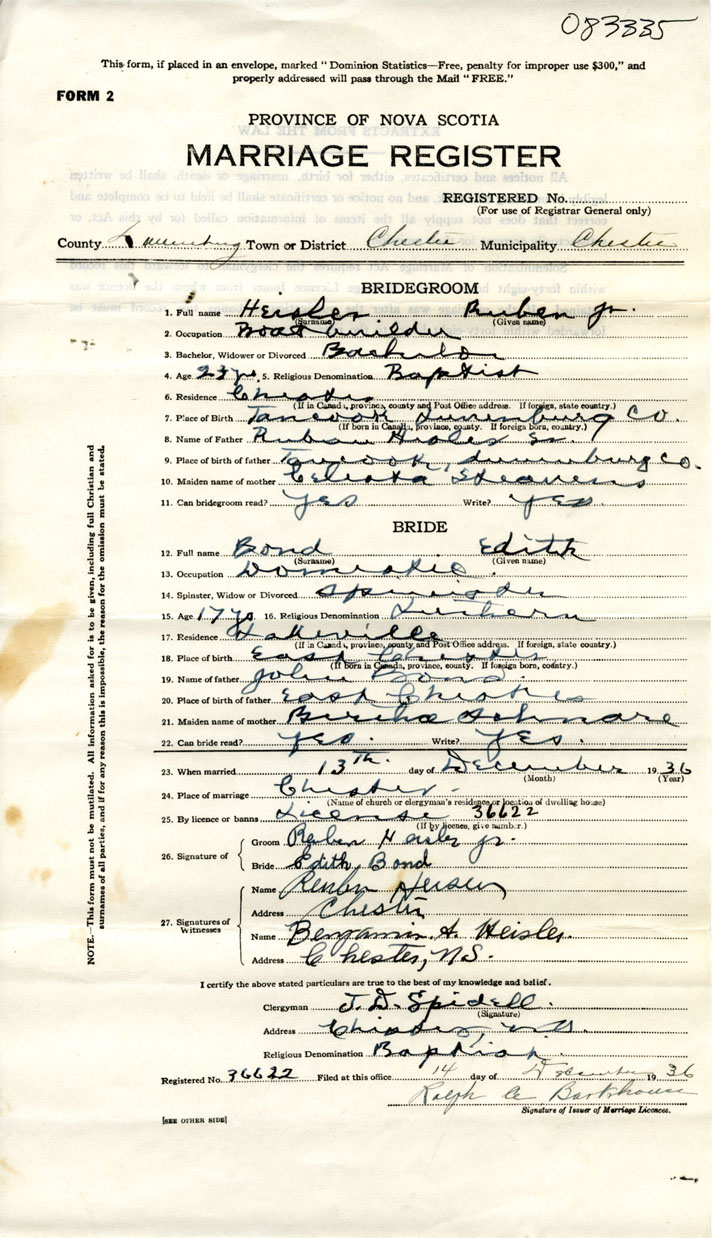 083335
This form, if placed in an envelope, marked "Dominion Statistics—Free, penalty for improper use $300," and
properly addressed will pass through the Mail "FREE."
FORM 2
PROVINCE OF NOVA SCOTIA
MARRIAGE REGISTER
REGISTERED No.
(For use of Registrar General only)
County Lunenburg Town or District Chester Municipality Chester
BRIDEGROOM
1. Full name Heisler Ruben Jr.
(Surname) (Given name)
2. Occupation Boat builder
3. Bachelor, Widower or Divorced Bachelor
4. Age 23 yr. 5. Religious Denomination Baptist
6. Residence Chester
(If in Canada, province, county and Post Office address. If foreign, state country.)
7. Place of Birth Tancook Lunenburg Co.
(If born in Canada, province, county. If foreign born, country.)
8. Name of Father Ruben Heisler Sr.
9. Place of birth of father Tancook, Lunenburg Co.
10. Maiden name of mother Stevens
11. Can bridegroom read? Yes Write? Yes
BRIDE
12. Full name Bond Edith
(Surname) (Given name)
13. Occupation Domestic
14. Spinster, Widow or Divorced Spinster
15. Age 17 yo 16. Religious Denomination Luthern
17. Residence
(If in Canada, province, county and Post Office address. If foreign, state country.)
18. Place of birth East Chester
(If born in Canada, province, county. If foreign born, country.)
19. Name of father John Bond.
20. Place of birth of father East Chester
21. Maiden name of mother Bertha Schnare
22. Can bride read? Yes. Write? Yes.
23. When married 13th. day of December 1936
(Month) (Year)
24. Place of marriage Chester.
(Name of church or clergyman's residence or location of dwelling house)
25. By licence or banns License 36622
(If by licence, give number.)
26. Signature of
Groom Reuben Heisler Jr.
Bride Edith Bond
27. Signatures of Witnesses
Name Reuben
Address Chester
Name Benjamin A. Heisler.
Address Chester, N.S.
I certify the above stated particulars are true to the best of my knowledge and belief.
Clergyman J. D. Spidell.
(Signature)
Address Chester, N.S.
Religious Denomination Baptist.
Registered No. 36622 Filed at this office 14 day of December 1936
Ralph Barkhouse
Signature of Issuer of Marriage Licences.
[SEE OTHER SIDE]
NOTE.—This form must not be mutilated. All information asked for is to be given, including full Christian and
surnames of all parties, and if for any reason this is impossible, the reason for the omission must be stated.